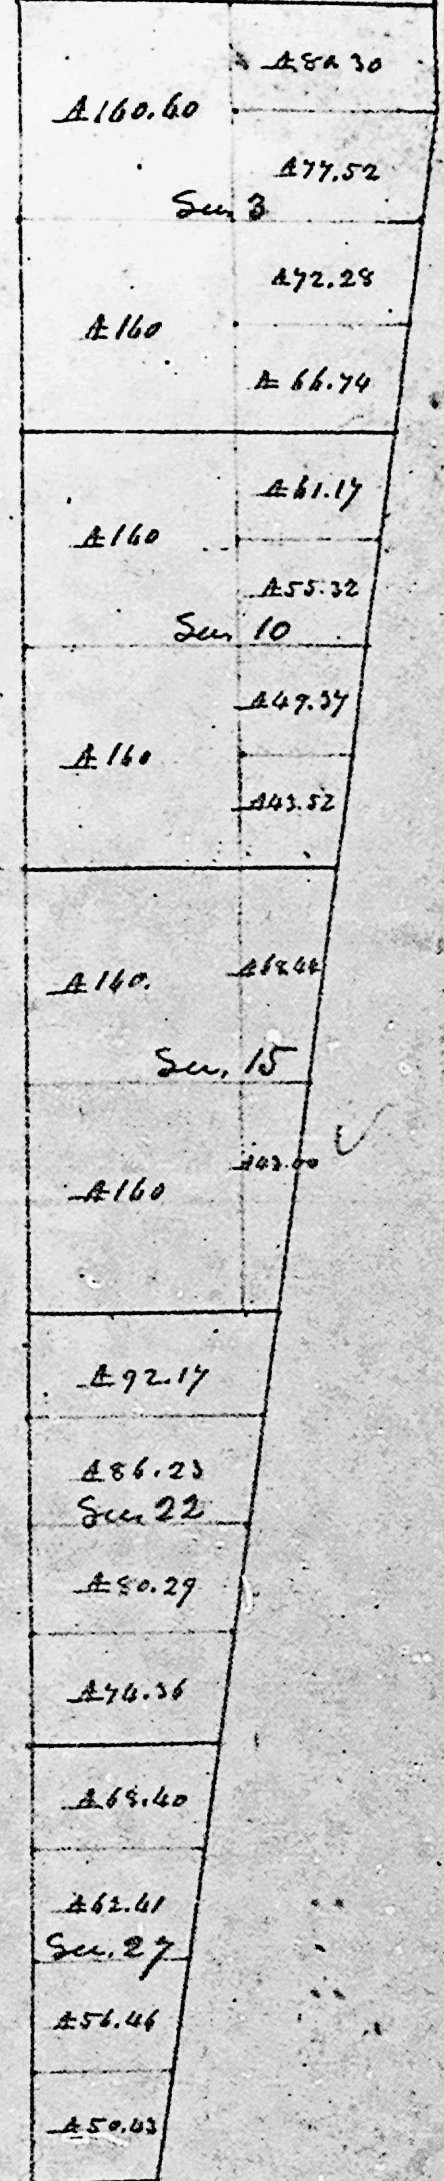 A 160.60
A 77.52
Sec. 3
A 72.28
A 160
A 66.74
A 61.17
A 160
A 55.32
Sec. 10
A 49.37
A 160
A 43.52
A 160.
Sec. 15
A 43.00
A 160
A 92.17
A 86.23
Sec. 22
A 80.29
A 74.36
A 68.40
A 62.41
Sec. 27
A 56.46
A 50.43